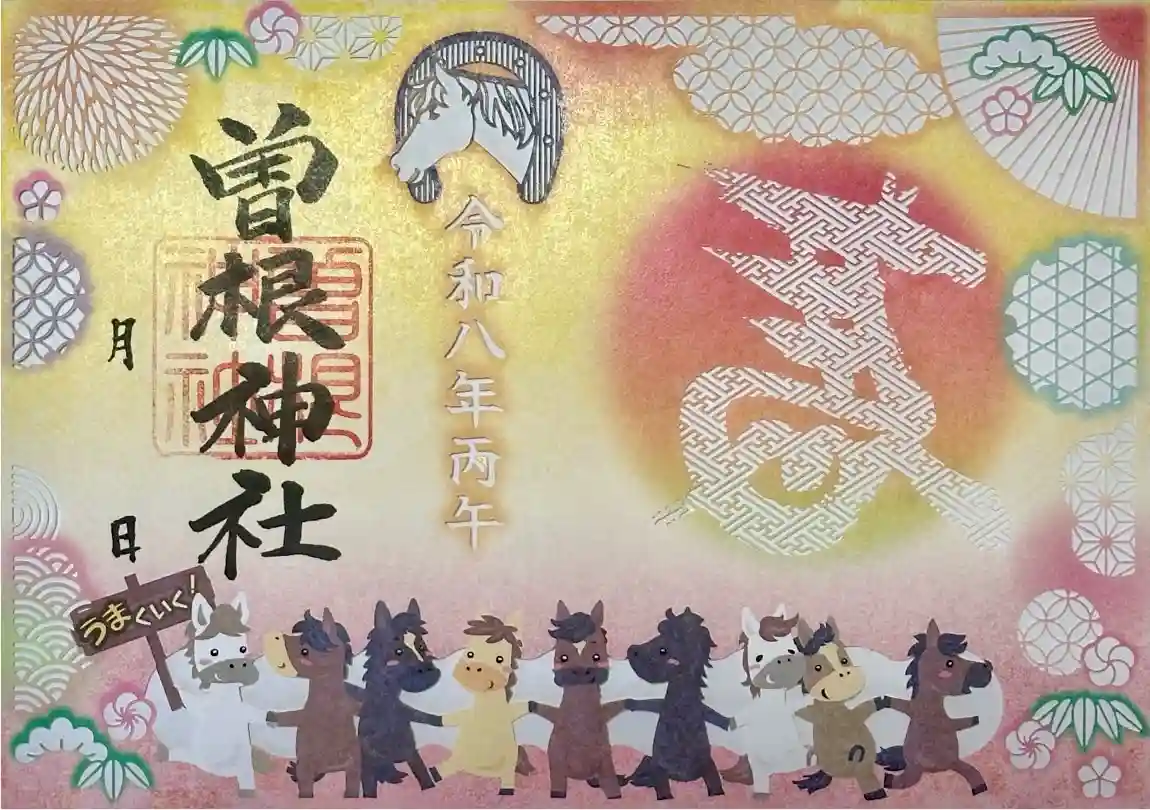 令和八年丙午
曽根神社
曽根
神社
月　日
うまくいく!